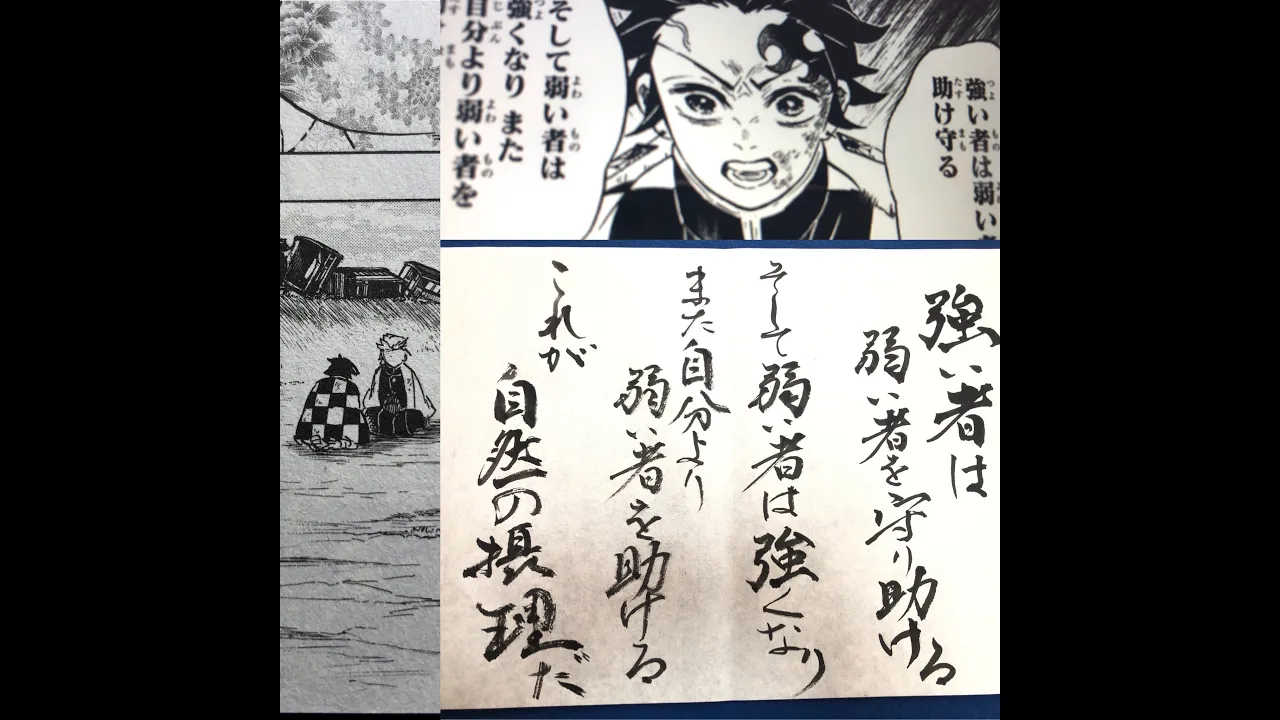 強い者は弱い
助け守る
そして弱い者は
強くなり また
自分より弱い者を
強い者は
弱い者を守り助ける
そして弱い者は強くなり
また自分より
弱い者を助ける
これが
自然の摂理だ